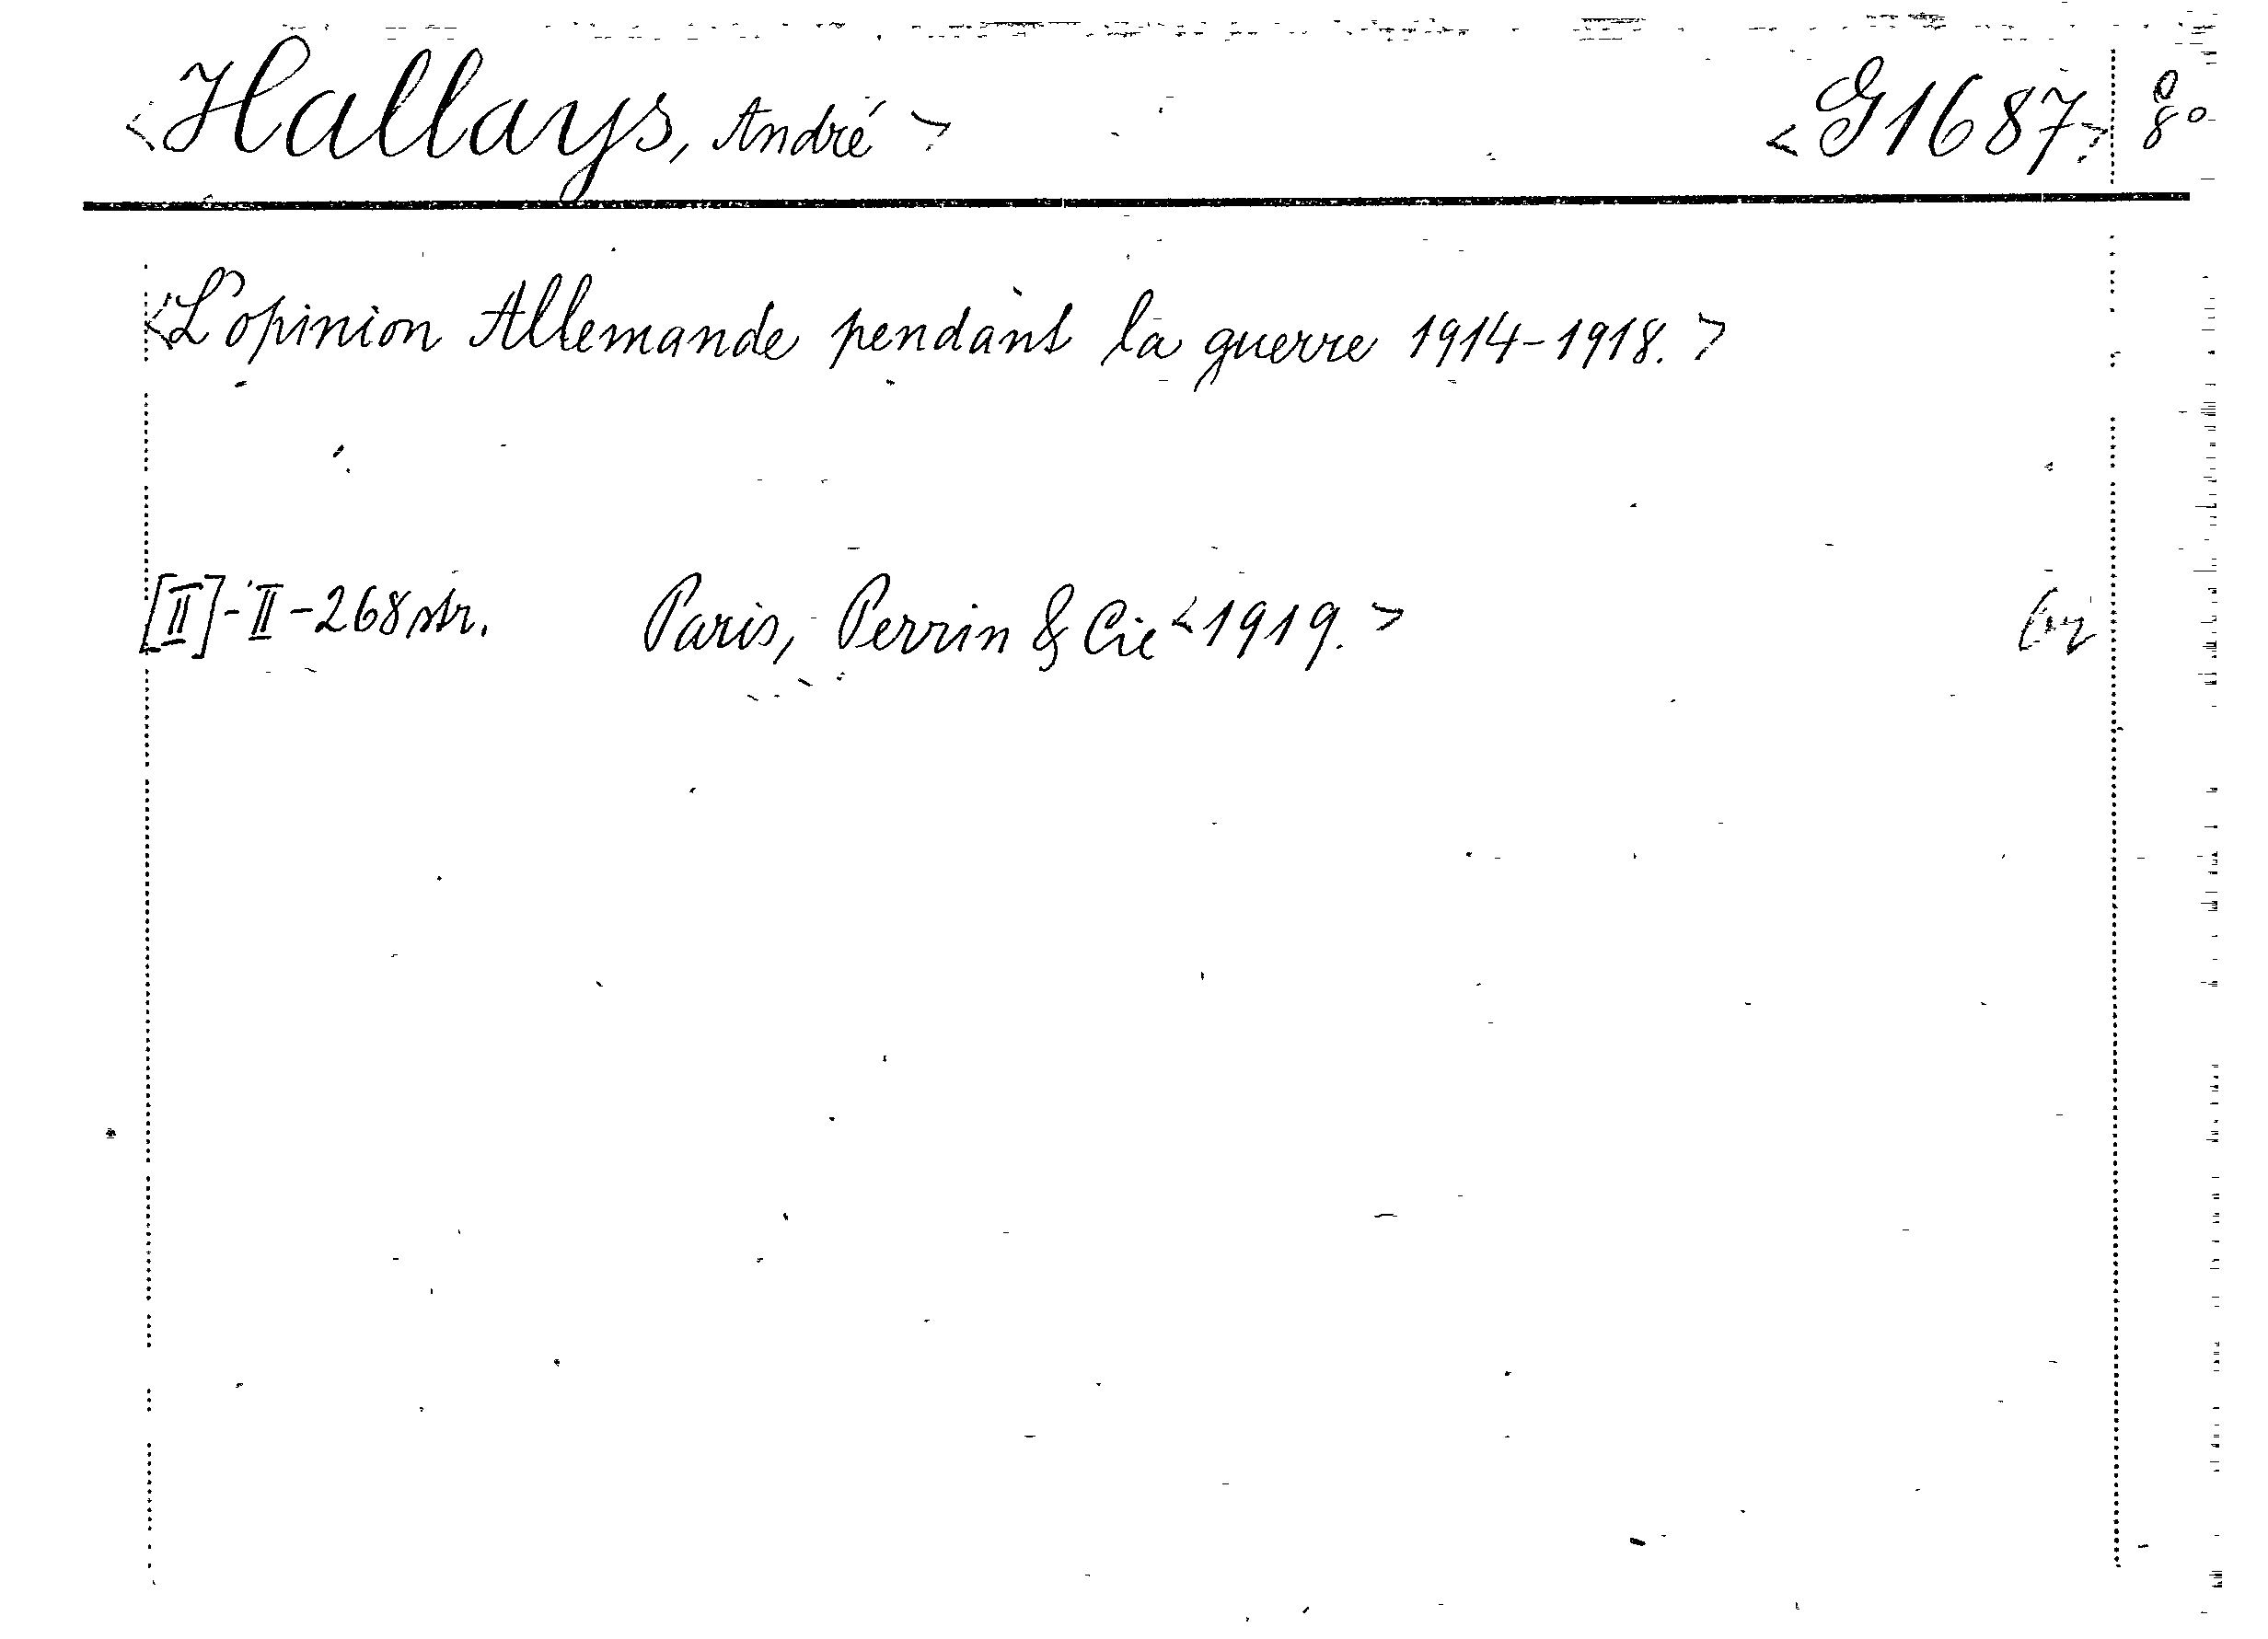 <Hallays, André> <G1687> 8°
<L'opinion Allemande pendant la guerre 1914-1918.>
[II]-II-268 str. Paris, Perrin & Cie <1919.>